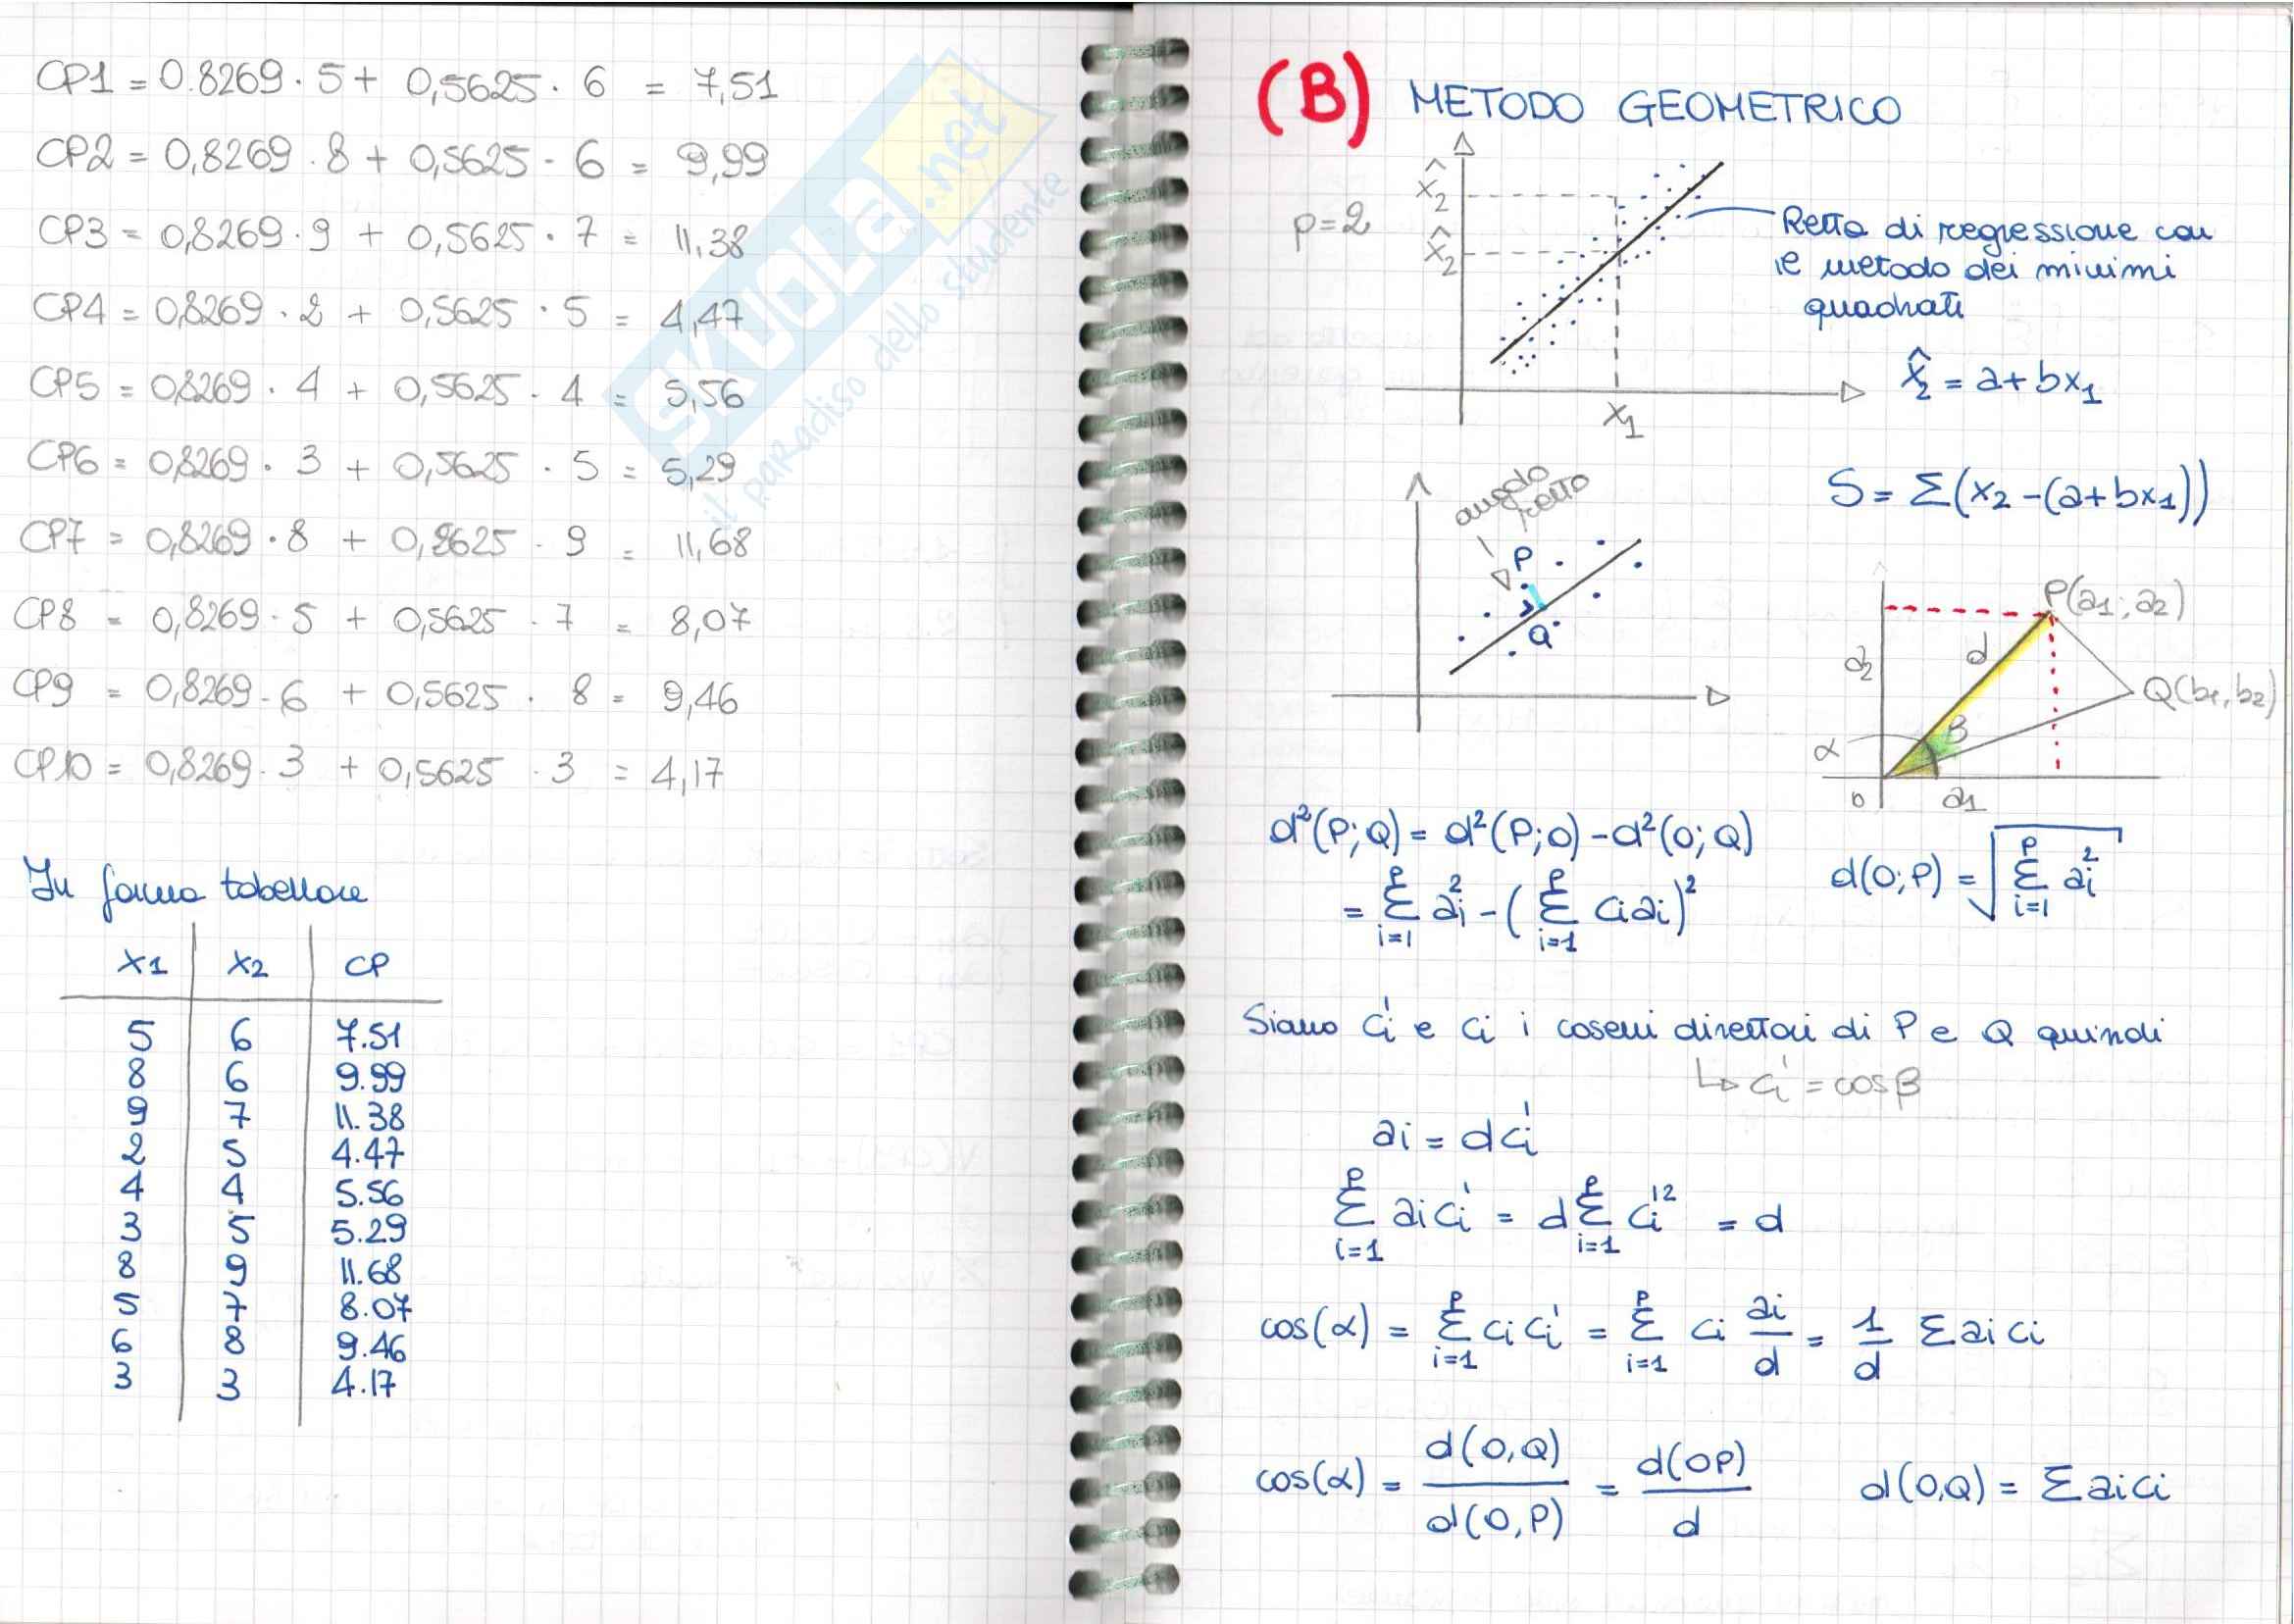 CP1 = 0.8269 · 5 + 0,5625 · 6 = 7,51
CP2 = 0,8269 · 8 + 0,5625 · 6 = 9,99
CP3 = 0,8269 · 9 + 0,5625 · 7 = 11,38
CP4 = 0,8269 · 2 + 0,5625 · 5 = 4,47
CP5 = 0,8269 · 4 + 0,5625 · 4 = 5,56
CP6 = 0,8269 · 3 + 0,5625 · 5 = 5,29
CP7 = 0,8269 · 8 + 0,5625 · 9 = 11,68
CP8 = 0,8269 · 5 + 0,5625 · 7 = 8,07
CP9 = 0,8269 · 6 + 0,5625 · 8 = 9,46
CP10 = 0,8269 · 3 + 0,5625 · 3 = 4,17
In forma tabellare
X1 X2 CP
5 6 7.51
8 6 9.99
9 7 11.38
2 5 4.47
4 4 5.56
3 5 5.29
8 9 11.68
5 7 8.07
6 8 9.46
3 3 4.17
SKUOLA.net
il paradiso dello studente
(B) METODO GEOMETRICO
p=2
x̂2
x̂2
x1
Retta di regressione con
il metodo dei minimi
quadrati
x̂2 = a+bx1
S = Σ(x2-(a+bx1))
angolo
retto
P
Q
P(a1; a2)
a2
d
Q(b1, b2)
β
α
0 a1
d²(P;Q) = d²(P;0) - d²(0;Q)
= Σ(i=1→p) ai² - (Σ(i=1→p) ci ai)²
d(0;P) = √(Σ(i=1→p) ai²)
Siano ci' e ci i coseni direttori di P e Q quindi
↳ ci' = cosβ
ai = dci'
Σ(i=1→p) ai ci' = d Σ(i=1→p) ci'² = d
cos(α) = Σ(i=1→p) ci ci' = Σ(i=1→p) ci ai/d = 1/d Σ ai ci
cos(α) = d(0,Q)/d(0,P) = d(OP)/d
d(0,Q) = Σ ai ci